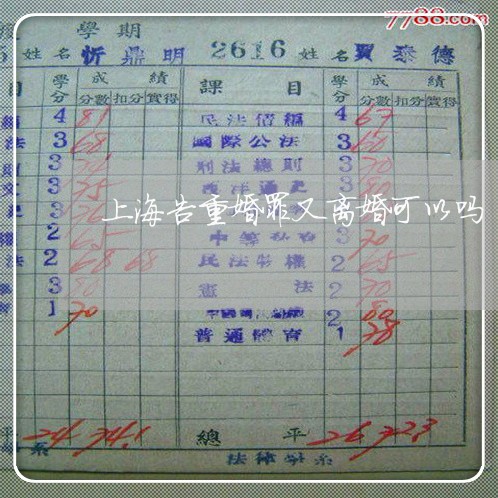 7788.com
學期
姓名 忻鼎明 2616 姓名 賈泰德
目 學分 成績 課目 學分 成績
分數 扣分 實得 分數 扣分 實得
4 81 民法債編 4 67
法 3 68 國際公法 3 60
3 刑法總則 3 70
3 75 西洋通史 3
上海告重婚罪又离婚可以吗
2 65 3 70
法 2 68 68 民法物權 2 65
3 80 憲法 2 70
1 70 2 80
普通體育 1 78
平 24 74.1 總平 26 72.3
系 法律學系